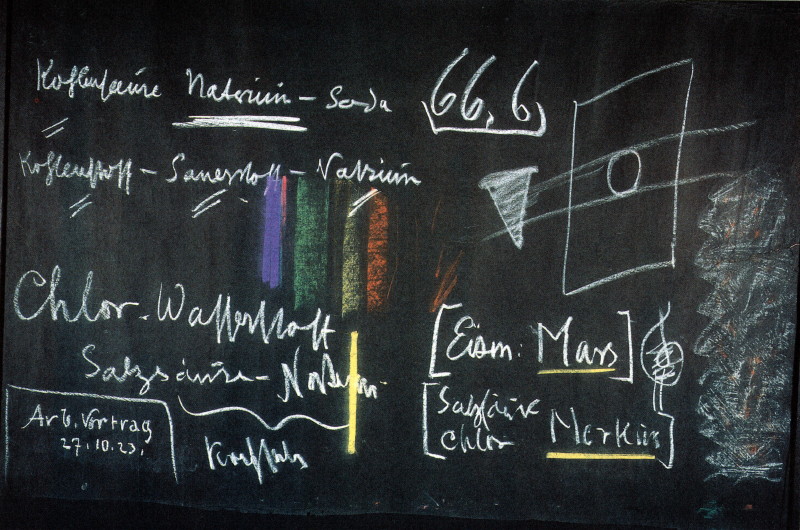 Kohlensäure Natrium – Soda
66,6
Kohlenstoff – Sauerstoff – Natrium
Chlor-Wasserstoff
Salzsäure – Natrium
Kochsalz
Arb. Vortrag
27.10.23.
[Eisen: Mars]
[Salzsäure
Chlor Merkur]